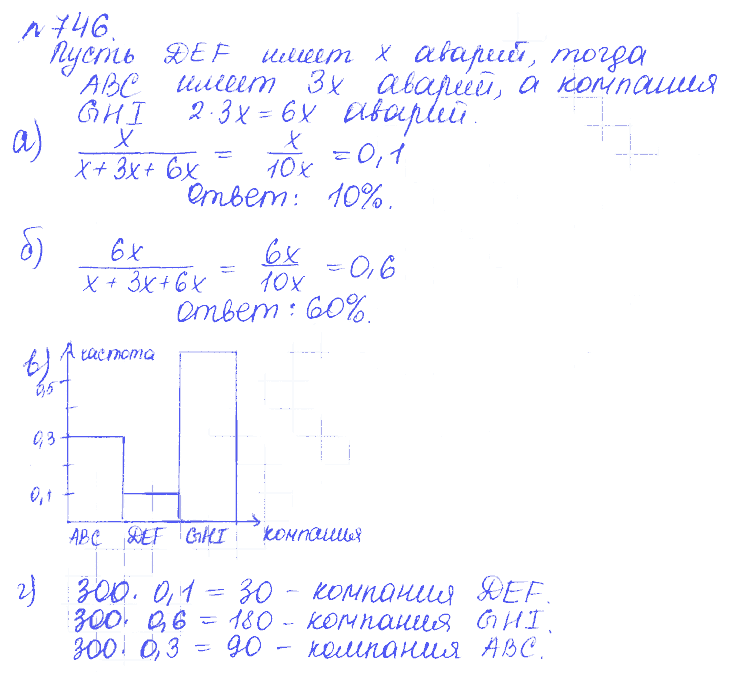 № 746.
Пусть DEF имеет x аварий, тогда
ABC имеет 3x аварий, а компания
GHI 2·3x = 6x аварий.
а) x / (x + 3x + 6x) = x / 10x = 0,1
Ответ: 10%.
б) 6x / (x + 3x + 6x) = 6x / 10x = 0,6
Ответ: 60%.
в) частота
0,5
0,3
0,1
ABC DEF GHI компания
г) 300 · 0,1 = 30 – компания DEF.
300 · 0,6 = 180 – компания GHI.
300 · 0,3 = 90 – компания ABC.